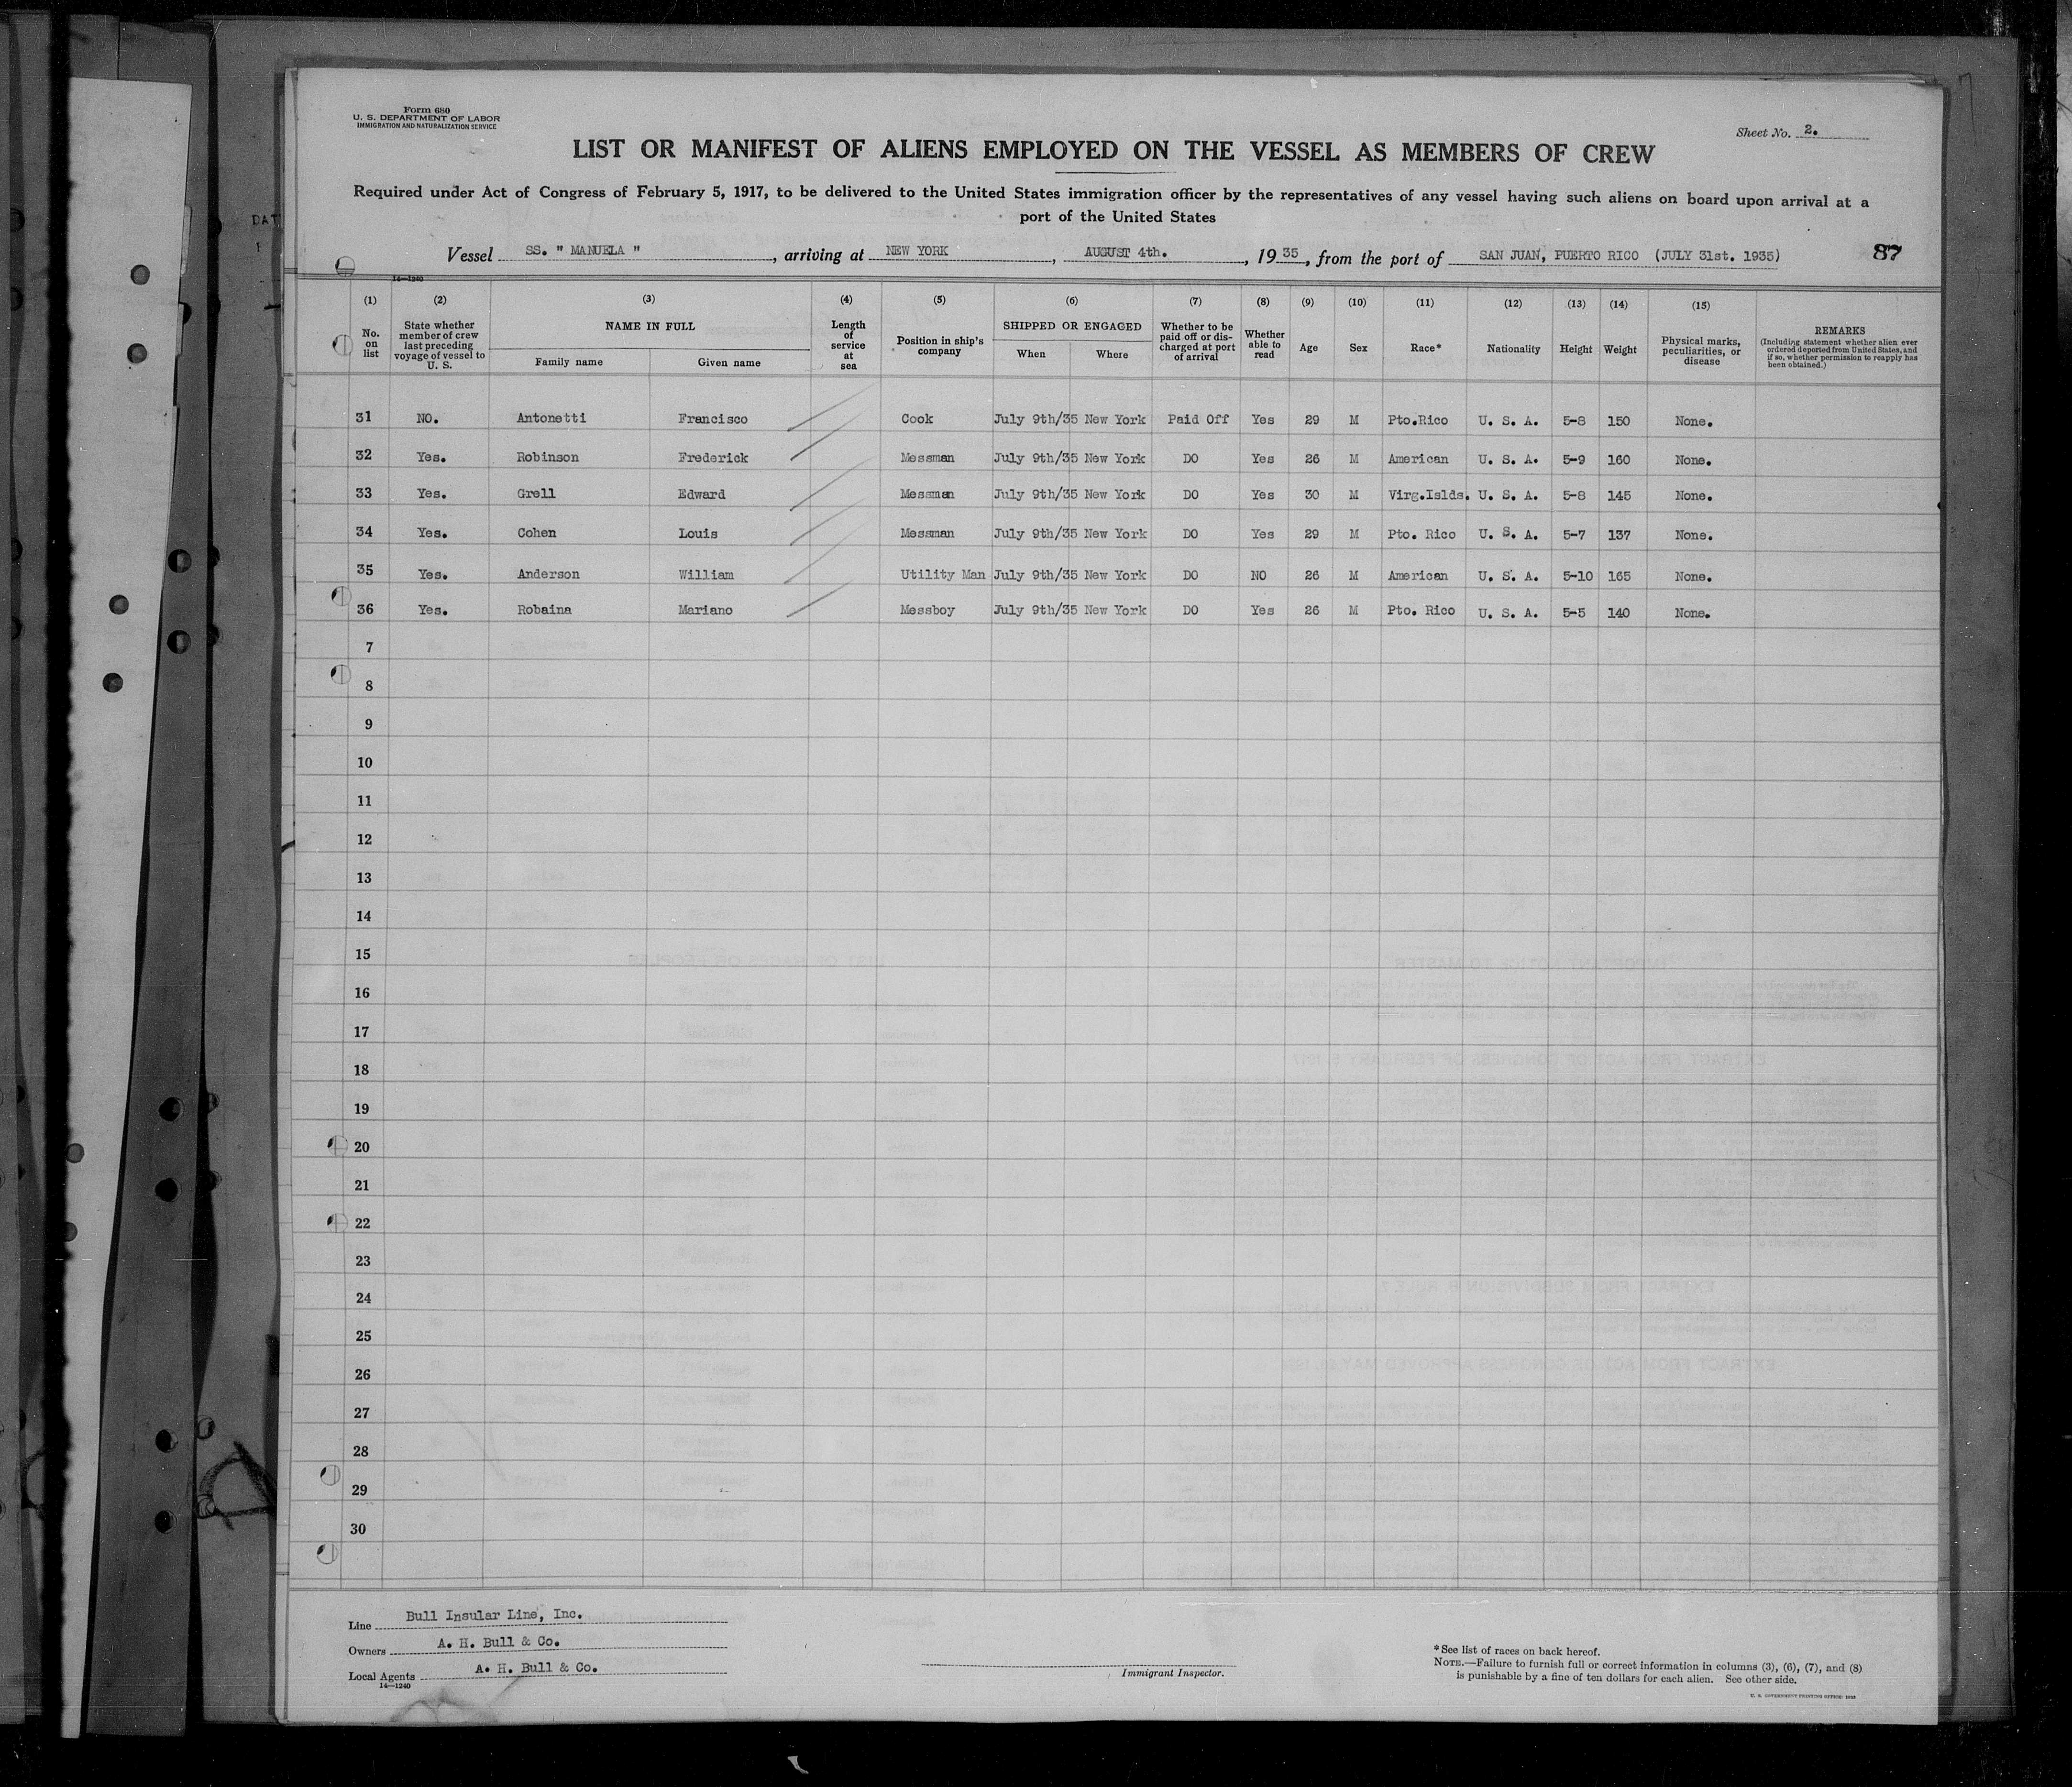 Form 680
U. S. DEPARTMENT OF LABOR
IMMIGRATION AND NATURALIZATION SERVICE
Sheet No. 2.
LIST OR MANIFEST OF ALIENS EMPLOYED ON THE VESSEL AS MEMBERS OF CREW
Required under Act of Congress of February 5, 1917, to be delivered to the United States immigration officer by the representatives of any vessel having such aliens on board upon arrival at a
port of the United States
Vessel SS. " MANUELA ", arriving at NEW YORK, AUGUST 4th., 19 35, from the port of SAN JUAN, PUERTO RICO (JULY 31st. 1935) 87
14—1240
(1) (2) (3) (4) (5) (6) (7) (8) (9) (10) (11) (12) (13) (14) (15)
No. on list State whether member of crew last preceding voyage of vessel to U. S. NAME IN FULL Family name Given name Length of service at sea Position in ship's company SHIPPED OR ENGAGED When Where Whether to be paid off or discharged at port of arrival Whether able to read Age Sex Race* Nationality Height Weight Physical marks, peculiarities, or disease REMARKS (Including statement whether alien ever ordered deported from United States, and if so, whether permission to reapply has been obtained.)
31 NO. Antonetti Francisco Cook July 9th/35 New York Paid Off Yes 29 M Pto.Rico U. S. A. 5-8 150 None.
32 Yes. Robinson Frederick Messman July 9th/35 New York DO Yes 26 M American U. S. A. 5-9 160 None.
33 Yes. Grell Edward Messman July 9th/35 New York DO Yes 30 M Virg.Islds. U. S. A. 5-8 145 None.
34 Yes. Cohen Louis Messman July 9th/35 New York DO Yes 29 M Pto. Rico U. S. A. 5-7 137 None.
35 Yes. Anderson William Utility Man July 9th/35 New York DO NO 26 M American U. S. A. 5-10 165 None.
36 Yes. Robaina Mariano Messboy July 9th/35 New York DO Yes 26 M Pto. Rico U. S. A. 5-5 140 None.
7
8
9
10
11
12
13
14
15
16
17
18
19
20
21
22
23
24
25
26
27
28
29
30
Line Bull Insular Line, Inc.
Owners A. H. Bull & Co.
Local Agents A. H. Bull & Co.
14—1240
Immigrant Inspector.
*See list of races on back hereof.
NOTE.—Failure to furnish full or correct information in columns (3), (6), (7), and (8)
is punishable by a fine of ten dollars for each alien. See other side.